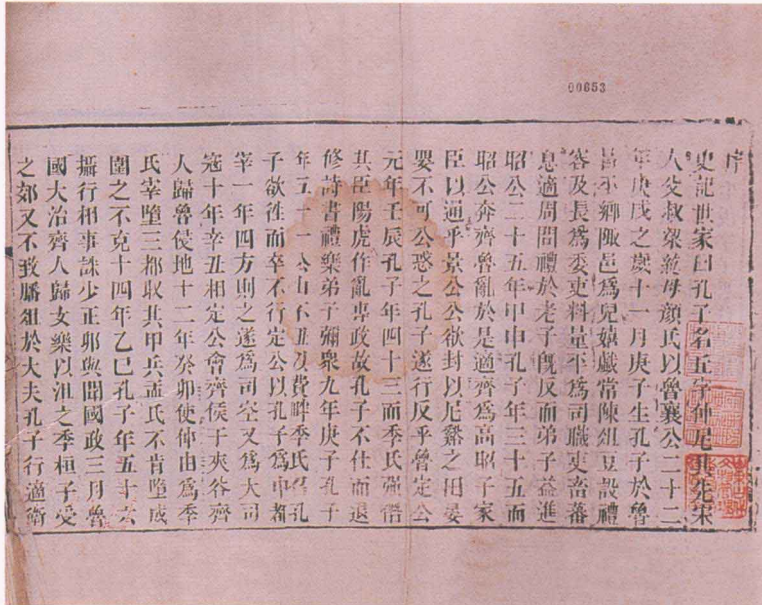 00653
序
史記世家曰孔子名丘字仲尼其先宋
人父叔梁紇母顏氏以魯襄公二十二
年庚戌之歲十一月庚子生孔子於魯
昌平鄉陬邑爲兒嬉戲常陳俎豆設禮
容及長爲委吏料量平爲司職吏畜蕃
息適周問禮於老子旣反而弟子益進
昭公二十五年甲申孔子年三十五而
昭公奔齊魯亂於是適齊爲高昭子家
臣以通乎景公公欲封以尼谿之田晏
嬰不可公惑之孔子遂行反乎魯定公
元年壬辰孔子年四十三而季氏強僭
其臣陽虎作亂專政故孔子不仕而退
修詩書禮樂弟子彌衆九年庚子孔子
年五十一公山不狃以費畔季氏召孔
子欲徃而卒不行定公以孔子爲中都
宰一年四方則之遂爲司空又爲大司
寇十年辛丑相定公會齊侯于夾谷齊
人歸魯侵地十二年癸卯使仲由爲季
氏宰墮三都收其甲兵孟氏不肯墮成
圍之不克十四年乙巳孔子年五十六
攝行相事誅少正卯與聞國政三月魯
國大治齊人歸女樂以沮之季桓子受
之郊又不致膰俎於大夫孔子行適衛